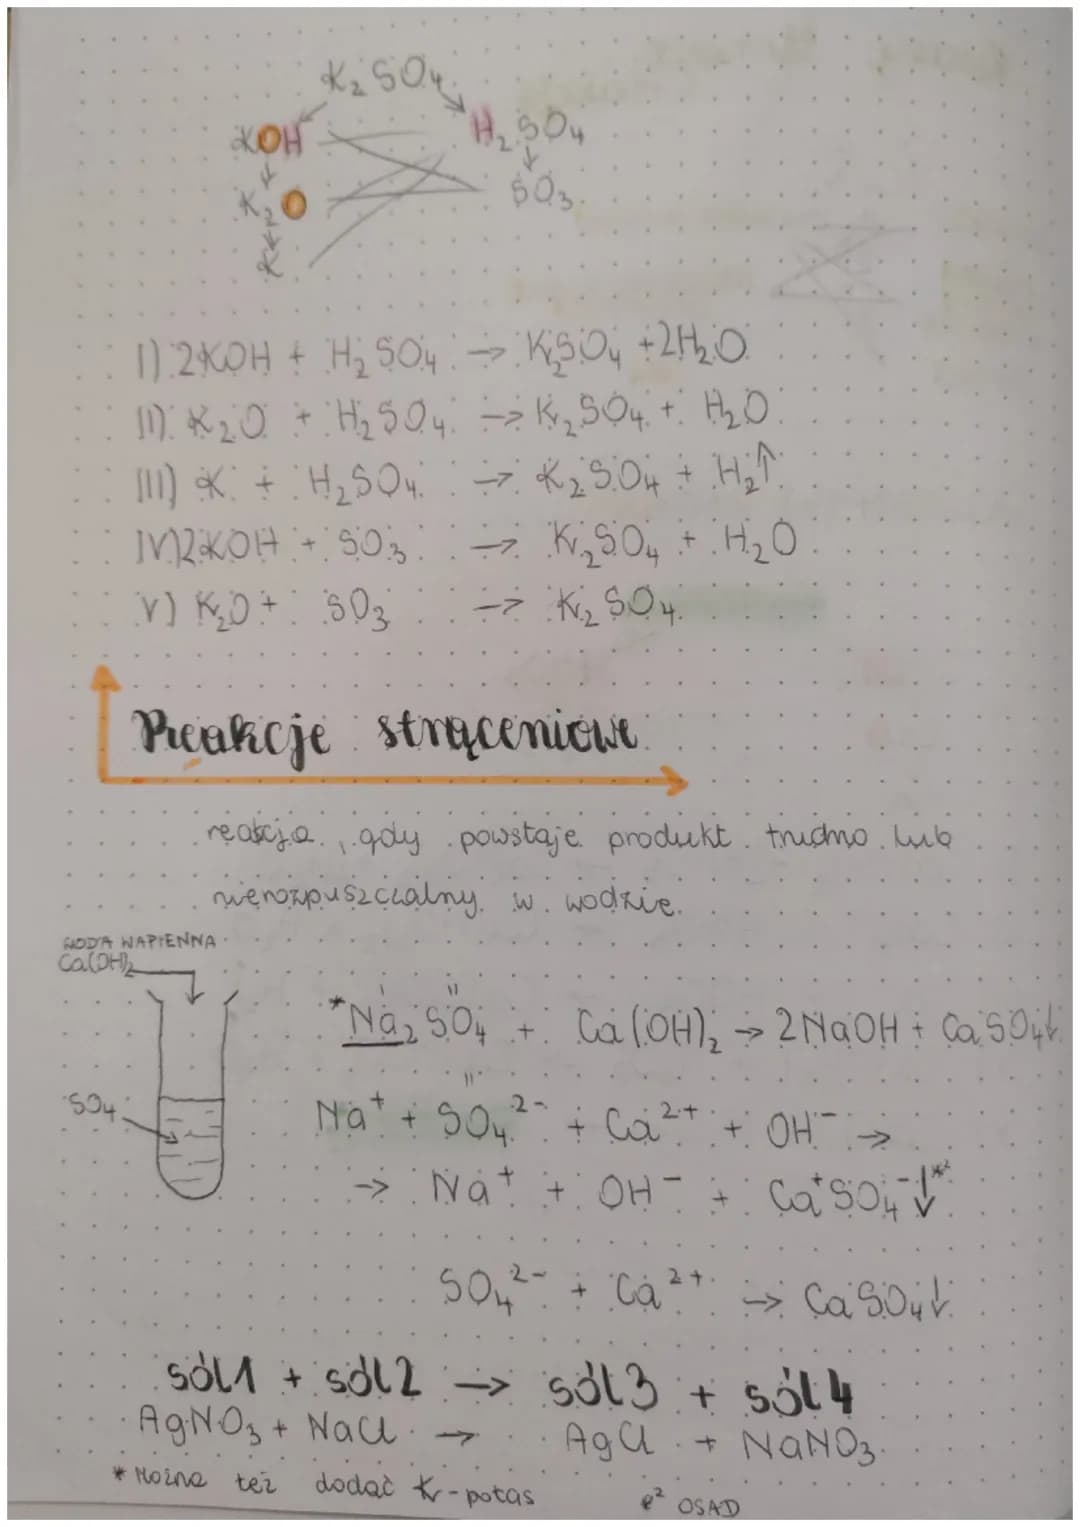 K₂SO₄
KOH H₂SO₄
K₂O SO₃
K
I) 2KOH + H₂SO₄ → K₂SO₄ + 2H₂O
II) K₂O + H₂SO₄ → K₂SO₄ + H₂O
III) K + H₂SO₄ → K₂SO₄ + H₂↑
IV) 2KOH + SO₃ → K₂SO₄ + H₂O
V) K₂O + SO₃ → K₂SO₄
Reakcje strąceniowe
reakcja, gdy powstaje produkt trudno lub
nierozpuszczalny w wodzie.
WODA WAPIENNA
Ca(OH)₂
*Na₂SO₄ + Ca(OH)₂ → 2NaOH + CaSO₄↓
SO₄
Na⁺ + SO₄²⁻ + Ca²⁺ + OH⁻ →
→ Na⁺ + OH⁻ + Ca⁺SO₄⁻↓*²
SO₄²⁻ + Ca²⁺ → CaSO₄↓
sól1 + sól2 → sól3 + sól4
AgNO₃ + NaCl → AgCl + NaNO₃
* Można też dodać K-potas
*² OSAD